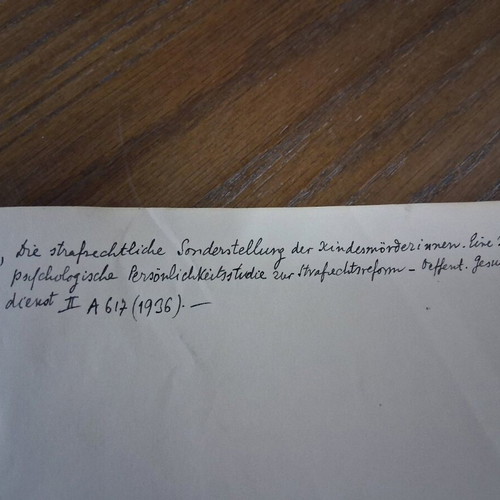 , Die strafrechtliche Sonderstellung der Kindesmörderinnen. Eine
psychologische Persönlichkeitsstudie zur Strafrechtsreform – Oeffent. Gesu
dienst II A 617 (1936). —